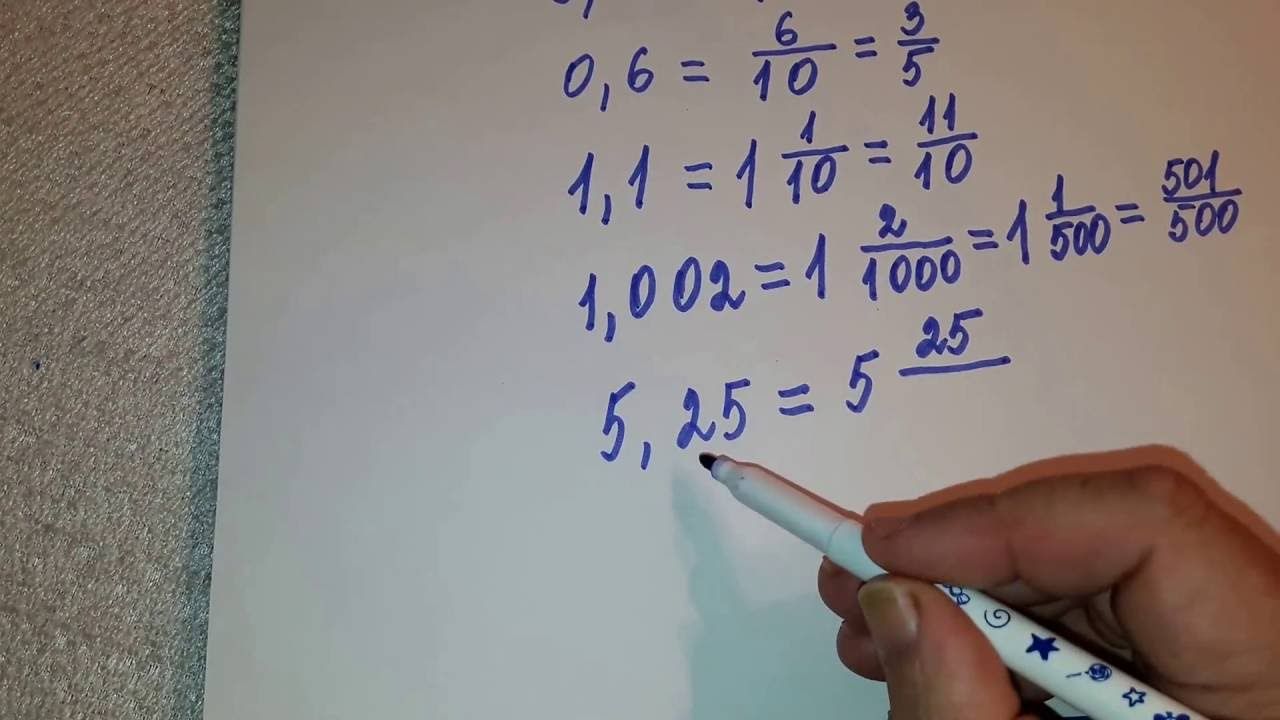 0,6 = 6/10 = 3/5
1,1 = 1 1/10 = 11/10
1,002 = 1 2/1000 = 1 1/500 = 501/500
5,25 = 5 25/